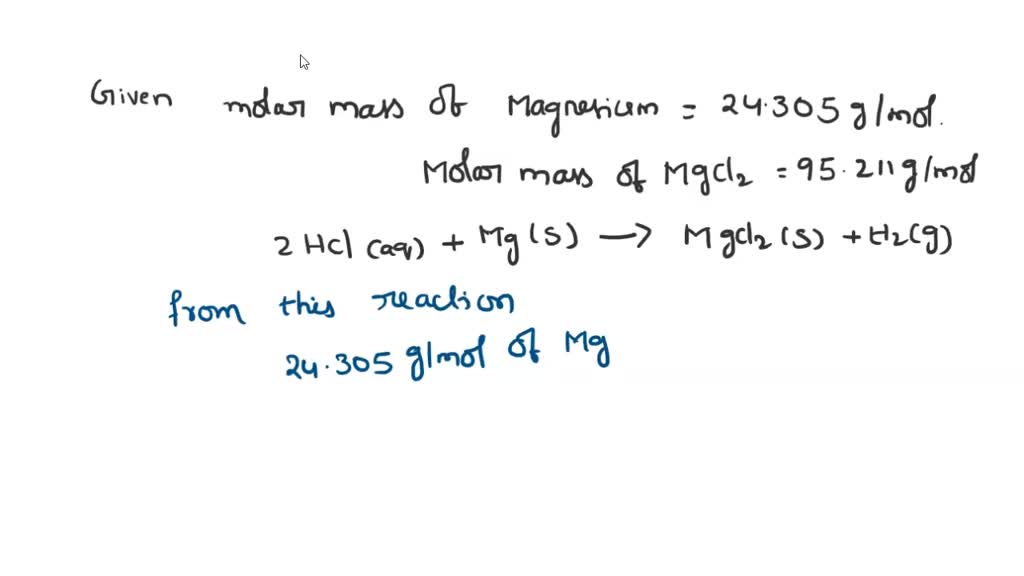 Given molar mass of Magnesium = 24.305 g/mol.
Molar mass of MgCl2 = 95.211 g/mol
2 HCl (aq) + Mg (s) → MgCl2 (s) + H2 (g)
from this reaction
24.305 g/mol of Mg